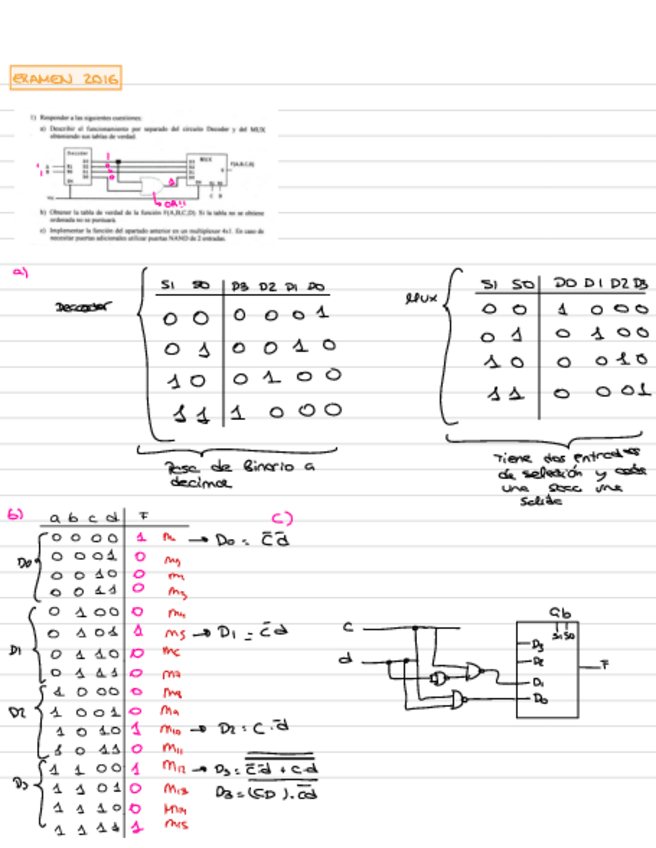 EXAMEN 2016
1) Responder a las siguientes cuestiones:
a) Describir el funcionamiento por separado del circuito Decoder y del MUX obteniendo sus tablas de verdad.
Decoder
MUX
F(A,B,C,D)
OR!!
b) Obtener la tabla de verdad de la función F(A,B,C,D). Si la tabla no se obtiene ordenada no se puntuará.
c) Implementar la función del apartado anterior en un multiplexor 4x1. En caso de necesitar puertas adicionales utilizar puertas NAND de 2 entradas.
a)
Decoder
S1 S0 D3 D2 D1 D0
0 0 0 0 0 1
0 1 0 0 1 0
1 0 0 1 0 0
1 1 1 0 0 0
Pasa de Binario a
decimal
Mux
S1 S0 D0 D1 D2 D3
0 0 1 0 0 0
0 1 0 1 0 0
1 0 0 0 1 0
1 1 0 0 0 1
Tiene dos entradas
de selección y
una saca una
salida
b)
a b c d F
D0
0 0 0 0 1 → D0 = c̄ d̄
0 0 0 1 0
0 0 1 0 0
0 0 1 1 0 m3
D1
0 1 0 0 0 m4
0 1 0 1 1 m5 → D1 = c̄ d
0 1 1 0 0 m6
0 1 1 1 0 m7
D2
1 0 0 0 0 m8
1 0 0 1 0 m9
1 0 1 0 1 m10 → D2 = c · d̄
1 0 1 1 0 m11
D3
1 1 0 0 1 m12 → D3 = c̄ d̄ + c d
1 1 0 1 0 m13
1 1 1 0 0 m14
1 1 1 1 1 m15
c)
c
d
ab
S1 S0
D3
D2
D1
D0
F